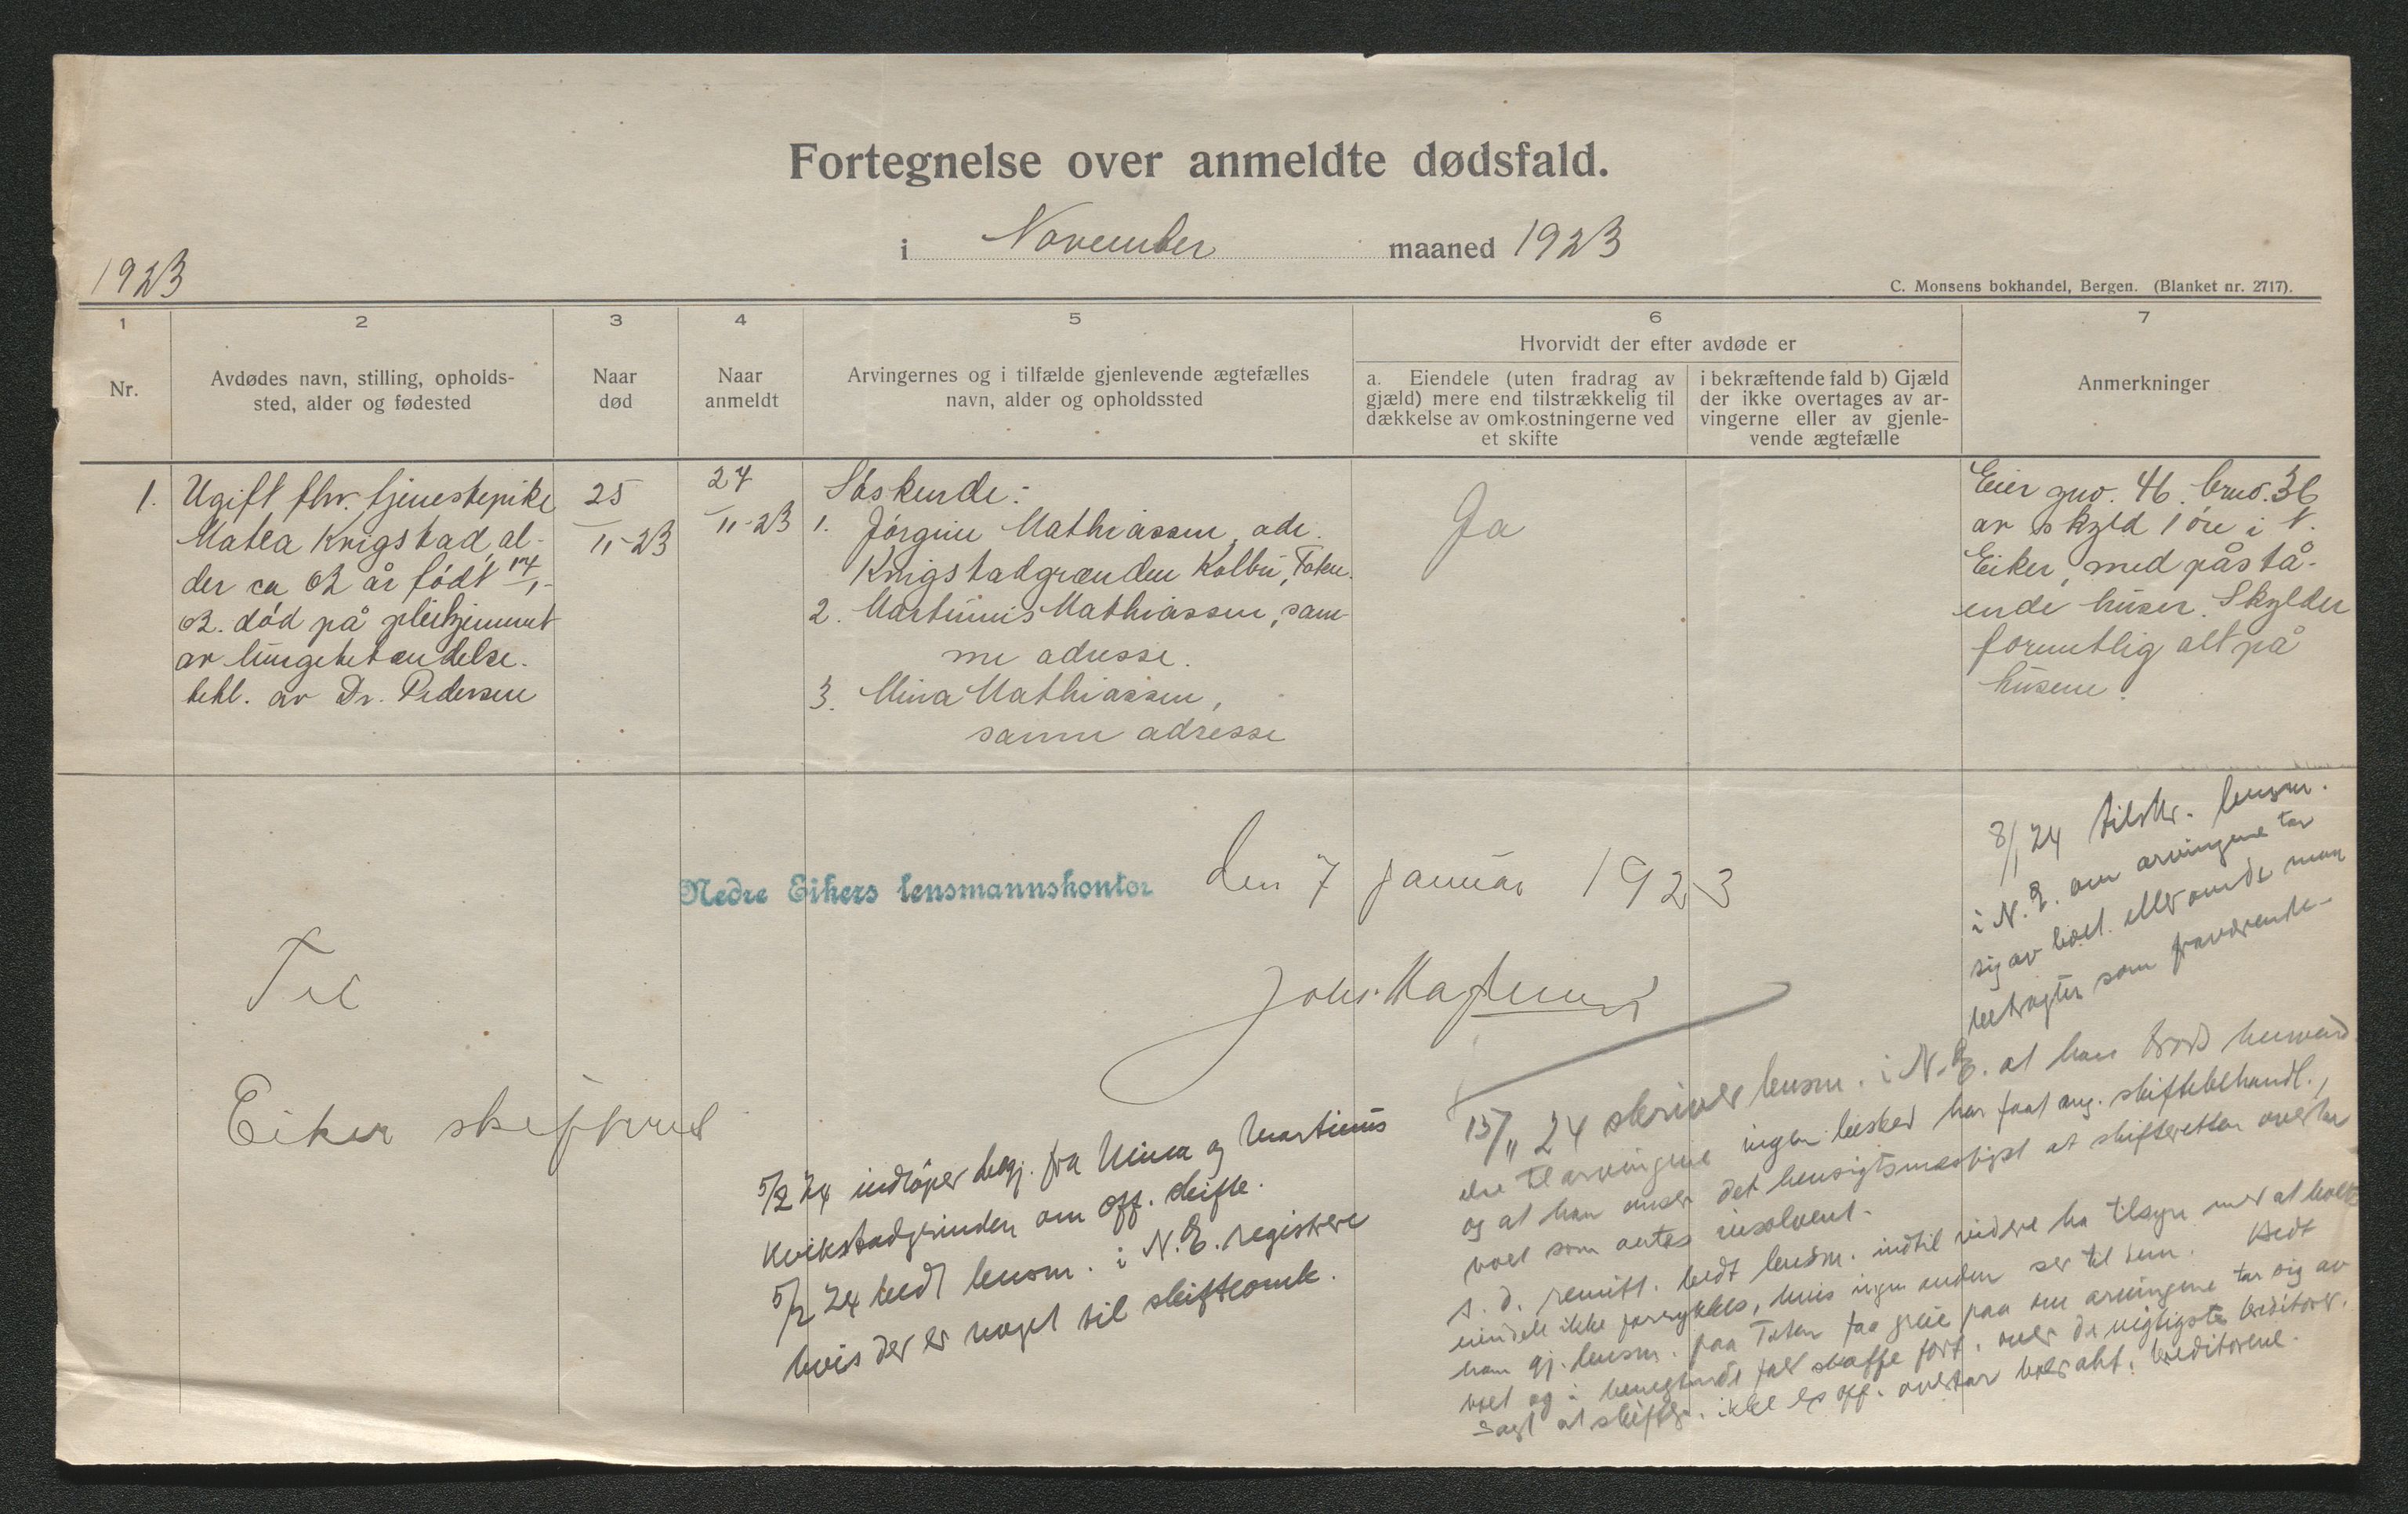 Fortegnelse over anmeldte dødsfald.
i November maaned 1923
1923
C. Monsens bokhandel, Bergen. (Blanket nr. 2717).
1 2 3 4 5 6 7
Nr.
Avdødes navn, stilling, opholds-
sted, alder og fødested
Naar
død
Naar
anmeldt
Arvingernes og i tilfælde gjenlevende ægtefælles
navn, alder og opholdssted
Hvorvidt der efter avdøde er
a. Eiendele (uten fradrag av
gjæld) mere end tilstrækkelig til
dækkelse av omkostningerne ved
et skifte
i bekræftende fald b) Gjæld
der ikke overtages av ar-
vingerne eller av gjenle-
vende ægtefælle
Anmerkninger
1.
Ugift fhv. tjenestepike
Matea Krigstad, al-
der ca 62 år født
62. død på pleihjemmet
av lungebetændelse.
behl. av Dr. Pedersen
25
11-23
27
11-23
Søskende:
1. Jørgine Mathiassen, adr.
Krigstadgrænden Kolbu, Toten.
2. Martinius Mathiassen, sam-
me adresse.
3. Mina Mathiassen,
samme adresse
Ja
Eier gno. 46. bruo. 36
av skyld 1 øre i N.
Eiker, med påstå-
ende huser. Skylder
formntlig alt på
husene.
8/1 24 tilskr. lensm.
i N. E. om arvingene tar
sig av boet eller om de maa
betragtes som fraværende-
Nedre Eikers lensmannskontor den 7 januar 1923
Til
Eiker skifteret
15/11 24 skriver lensm. i N. E. at han trods henvend
else til arvingene ingen besked har faat ang. skiftebehandl.,
og at han anser det hensigtsmæssigst at skifteretten overtar
boet som antas insolvent.
s. d. remitt. bedt lensm. indtil videre ha tilsyn med at boets
eiendele ikke forrykkes, hvis ingen anden ser til dem. Bedt
ham gj. lensm. paa Toten faa greie paa om arvingene tar sig av
boet og i benegtende fald skaffe fort. over de vigtigste kreditorer.
Sagt at skifter. ikke ex off. overtar boer alt. kreditorene.
5/2 24 indløper begj. fra Mina og Martinius
Kvikstadgrinden om off. skifte.
5/2 24 bedt lensm. i N. E. registrere
hvis der er noget til skifteomk.